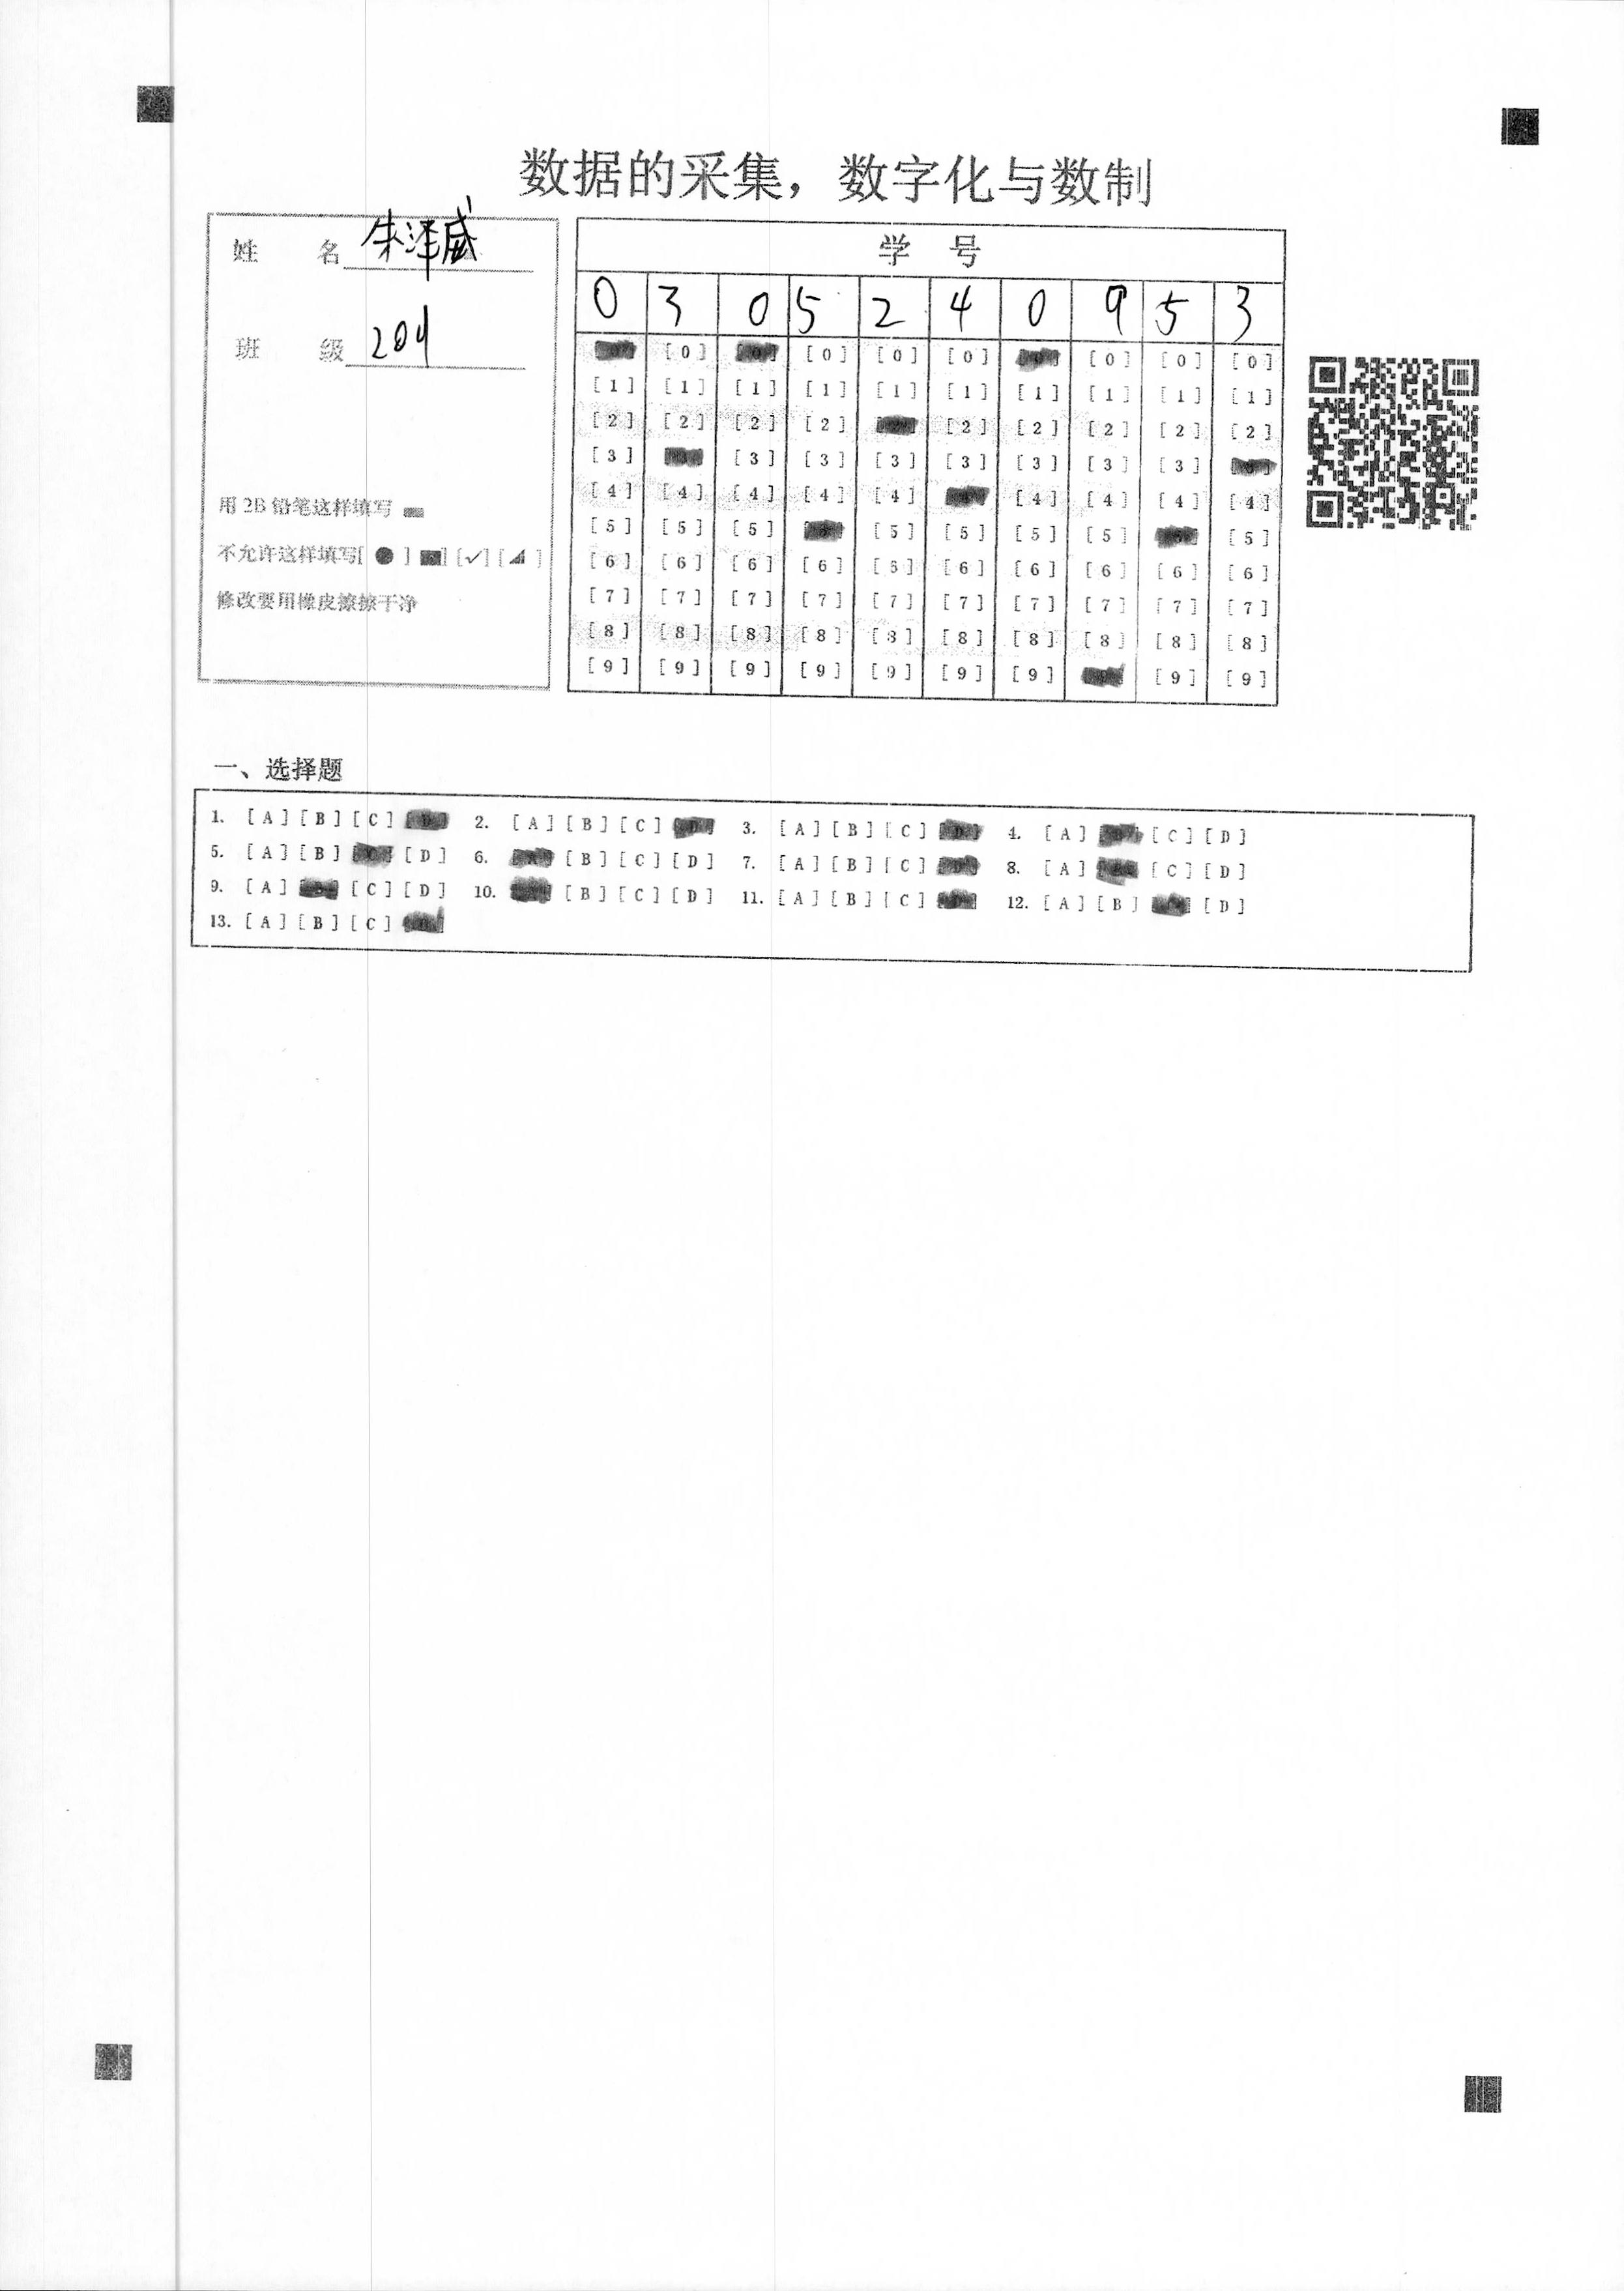 数据的采集，数字化与数制
姓 名 朱泽威
班 级 204
用 2B 铅笔这样填写
不允许这样填写[ ● ] [✓] [ ]
修改要用橡皮擦擦干净
学 号
0 3 0 5 2 4 0 9 5 3
[0] [0] [0] [0] [0] [0] [0]
[1] [1] [1] [1] [1] [1] [1] [1] [1] [1]
[2] [2] [2] [2] [2] [2] [2] [2] [2]
[3] [3] [3] [3] [3] [3] [3] [3]
[4] [4] [4] [4] [4] [4] [4] [4] [4]
[5] [5] [5] [5] [5] [5] [5] [5]
[6] [6] [6] [6] [6] [6] [6] [6] [6] [6]
[7] [7] [7] [7] [7] [7] [7] [7] [7] [7]
[8] [8] [8] [8] [8] [8] [8] [8] [8] [8]
[9] [9] [9] [9] [9] [9] [9] [9] [9]
一、选择题
1. [A] [B] [C] 2. [A] [B] [C] 3. [A] [B] [C] 4. [A] [C] [D]
5. [A] [B] [D] 6. [B] [C] [D] 7. [A] [B] [C] 8. [A] [C] [D]
9. [A] [C] [D] 10. [B] [C] [D] 11. [A] [B] [C] 12. [A] [B] [D]
13. [A] [B] [C]